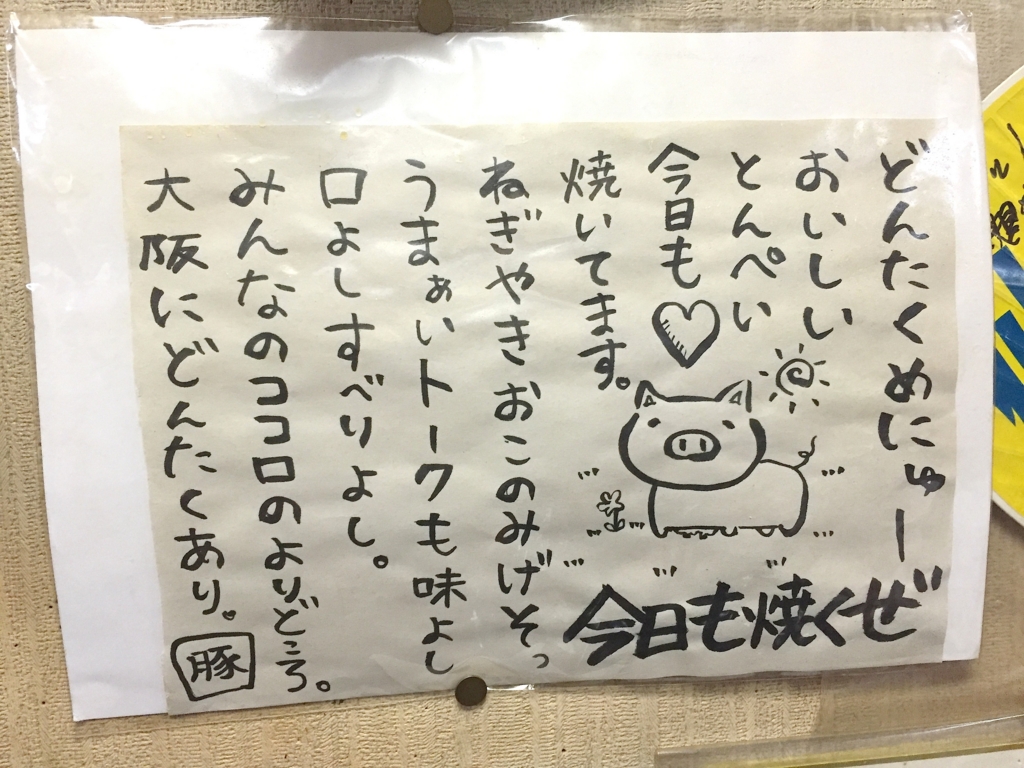 どんたくめにゅー
おいしい
とんぺい
今日も♡
焼いてます。
ねぎやきおこのみげそっ
うまぁぃトークも味よし
口よしすべりよし。
みんなのココロのよりどころ。
大阪にどんたくあり。
豚
今日も焼くぜ